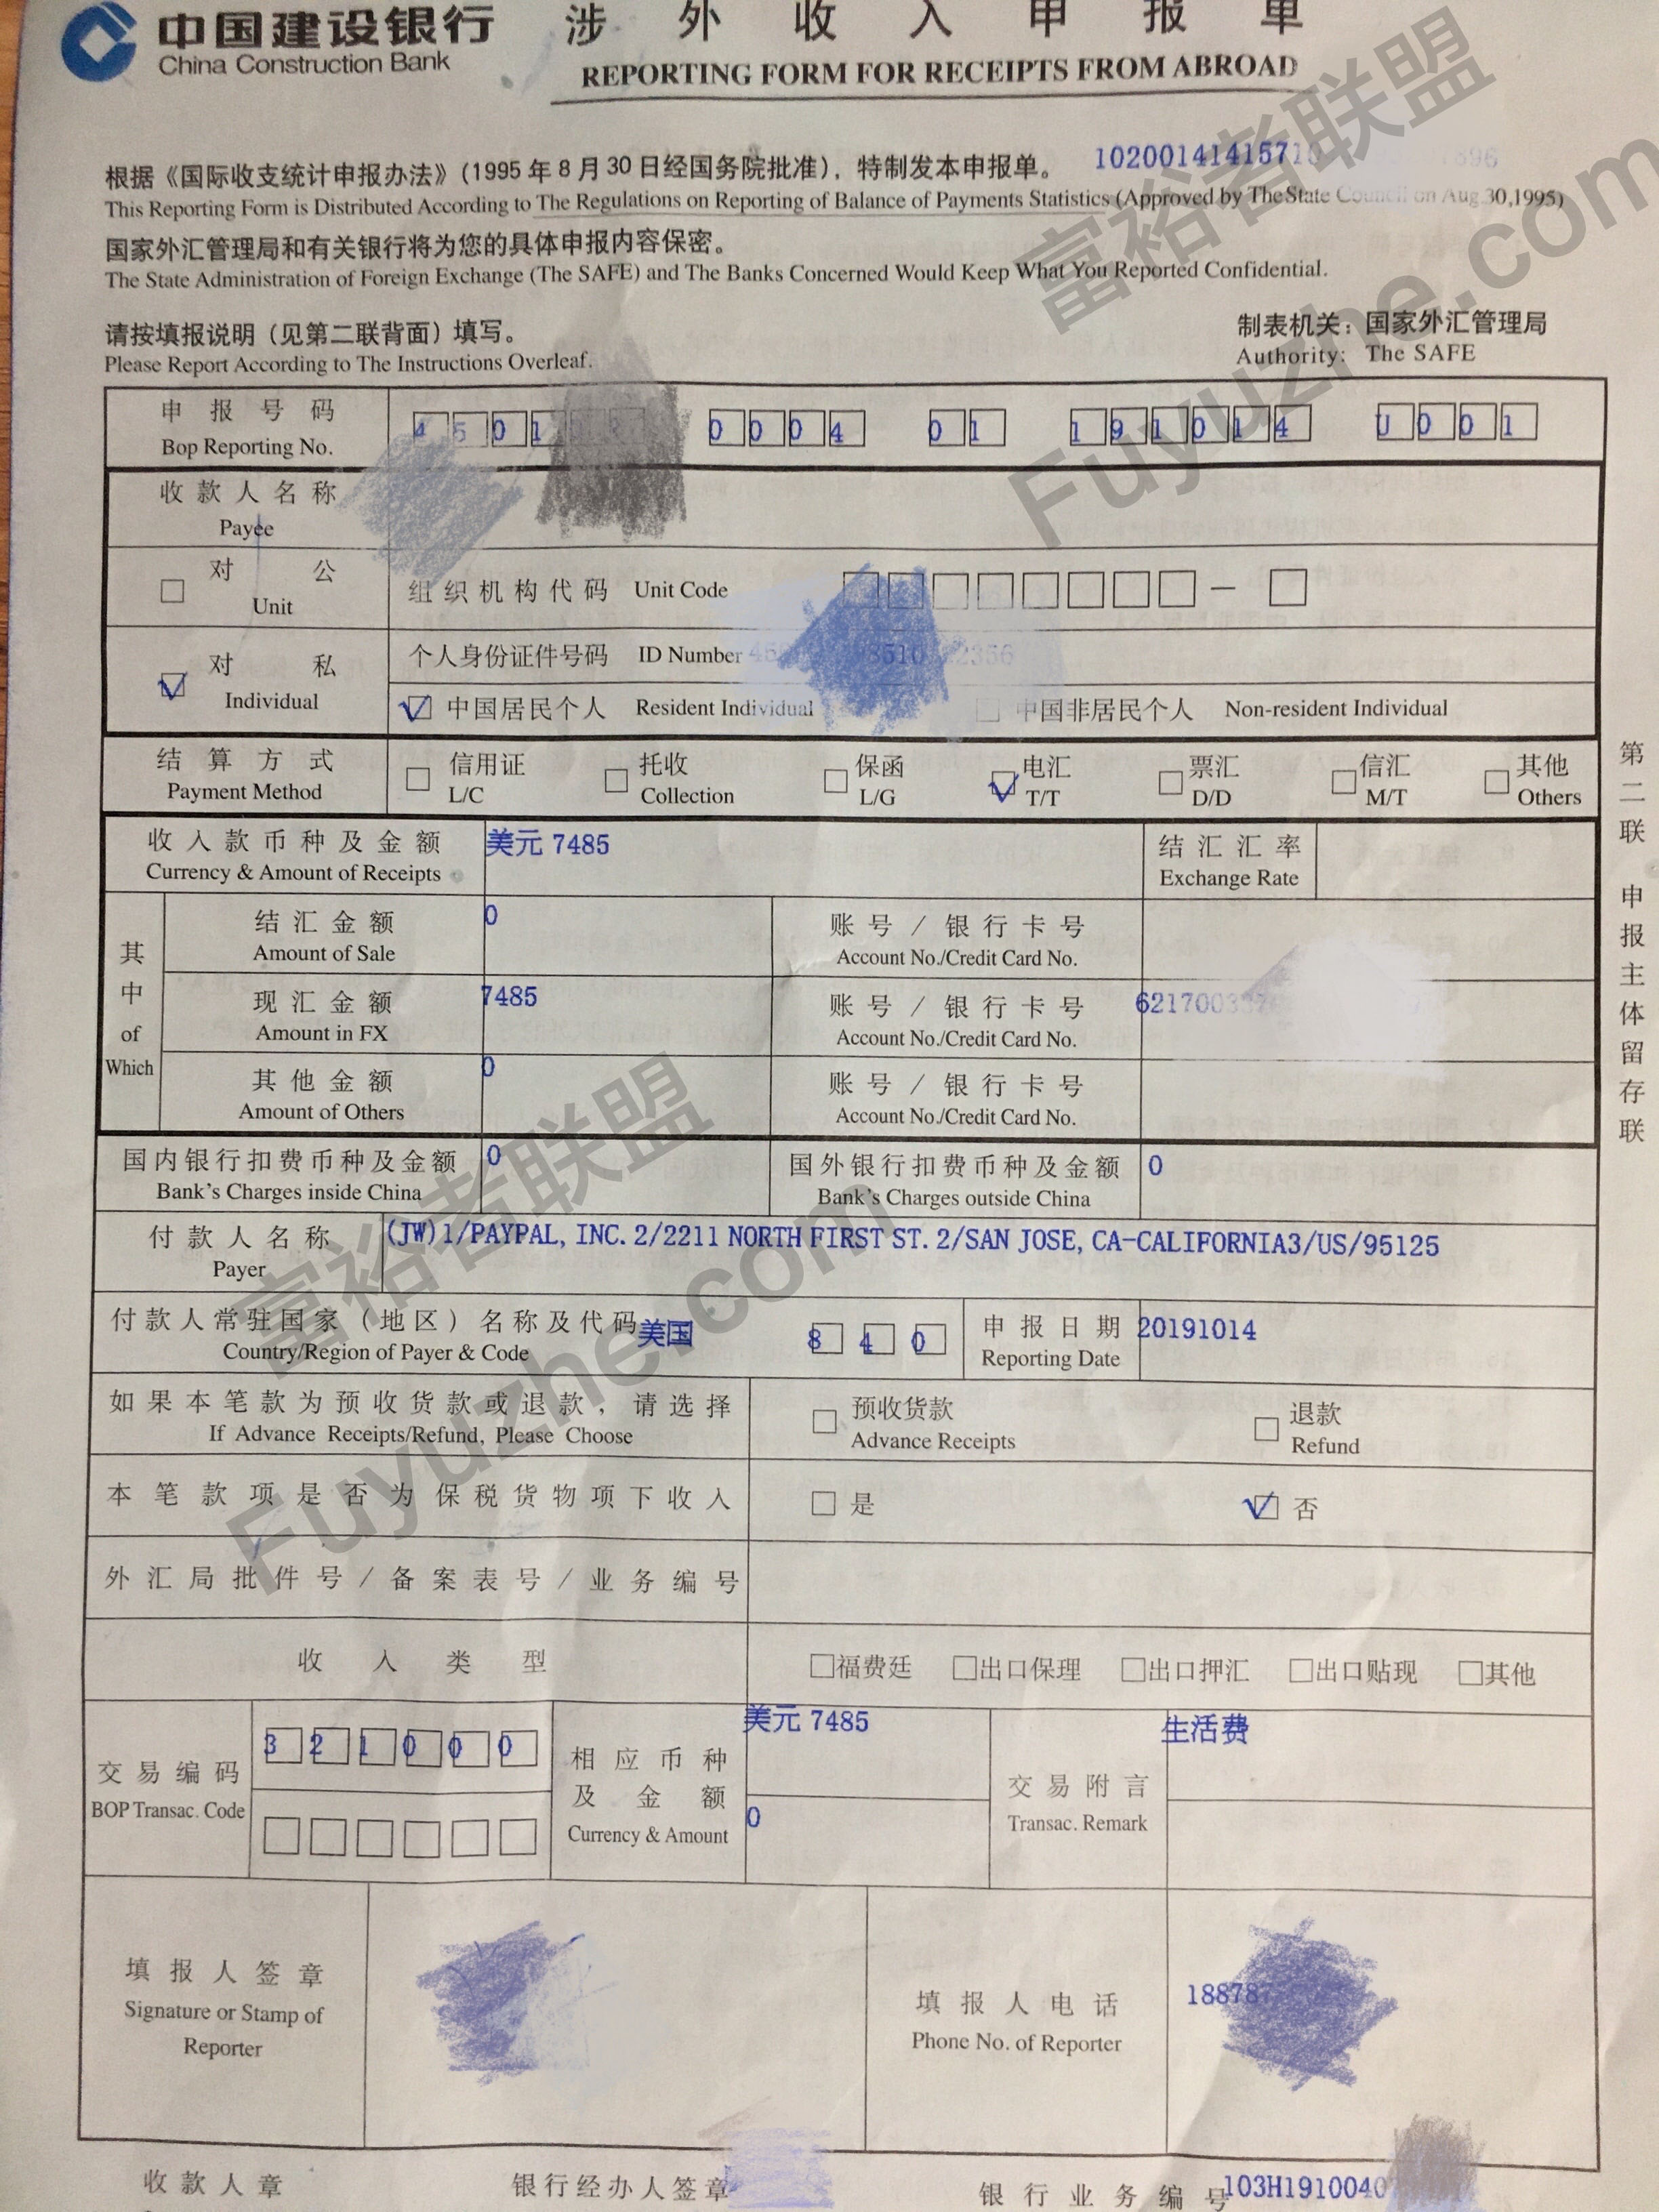 中国建设银行 涉外收入申报单
China Construction Bank REPORTING FORM FOR RECEIPTS FROM ABROAD
1020014141571
根据《国际收支统计申报办法》(1995年8月30日经国务院批准)，特制发本申报单。
This Reporting Form is Distributed According to The Regulations on Reporting of Balance of Payments Statistics (Approved by The State Council on Aug.30,1995)
国家外汇管理局和有关银行将为您的具体申报内容保密。
The State Administration of Foreign Exchange (The SAFE) and The Banks Concerned Would Keep What You Reported Confidential.
请按填报说明（见第二联背面）填写。 制表机关：国家外汇管理局
Please Report According to The Instructions Overleaf. Authority: The SAFE
申报号码 4501 0004 01 191014 U001
Bop Reporting No.
收款人名称
Payee
对公 组织机构代码 Unit Code
Unit
对私 个人身份证件号码 ID Number
Individual 中国居民个人 Resident Individual 中国非居民个人 Non-resident Individual
结算方式 信用证 托收 保函 电汇 票汇 信汇 其他
Payment Method L/C Collection L/G T/T D/D M/T Others
收入款币种及金额 美元 7485 结汇汇率
Currency & Amount of Receipts Exchange Rate
其中 of Which
结汇金额 0 账号/银行卡号
Amount of Sale Account No./Credit Card No.
现汇金额 7485 账号/银行卡号 621700
Amount in FX Account No./Credit Card No.
其他金额 0 账号/银行卡号
Amount of Others Account No./Credit Card No.
国内银行扣费币种及金额 0 国外银行扣费币种及金额 0
Bank's Charges inside China Bank's Charges outside China
付款人名称 (JW)1/PAYPAL, INC. 2/2211 NORTH FIRST ST. 2/SAN JOSE, CA-CALIFORNIA3/US/95125
Payer
付款人常驻国家（地区）名称及代码 美国 840 申报日期 20191014
Country/Region of Payer & Code Reporting Date
如果本笔款为预收货款或退款，请选择 预收货款 退款
If Advance Receipts/Refund, Please Choose Advance Receipts Refund
本笔款项是否为保税货物项下收入 是 否
外汇局批件号/备案表号/业务编号
收入类型 福费廷 出口保理 出口押汇 出口贴现 其他
交易编码 321000 相应币种及金额 美元 7485 交易附言 生活费
BOP Transac. Code Currency & Amount 0 Transac. Remark
填报人签章 填报人电话 188787
Signature or Stamp of Reporter Phone No. of Reporter
收款人章 银行经办人签章 银行业务编号 103H1910040
第二联 申报主体留存联
富裕者联盟
Fuyuzhe.com
富裕者联盟
Fuyuzhe.com